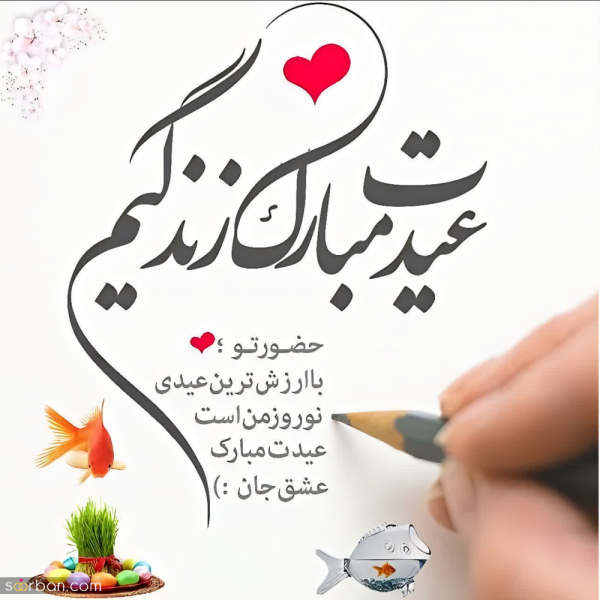 عیدت مبارک زندگیم
حضورتو ؛
باارزش‌ترین عیدی
نوروز من است
عیدت مبارک
عشق جان :)
soorban.com